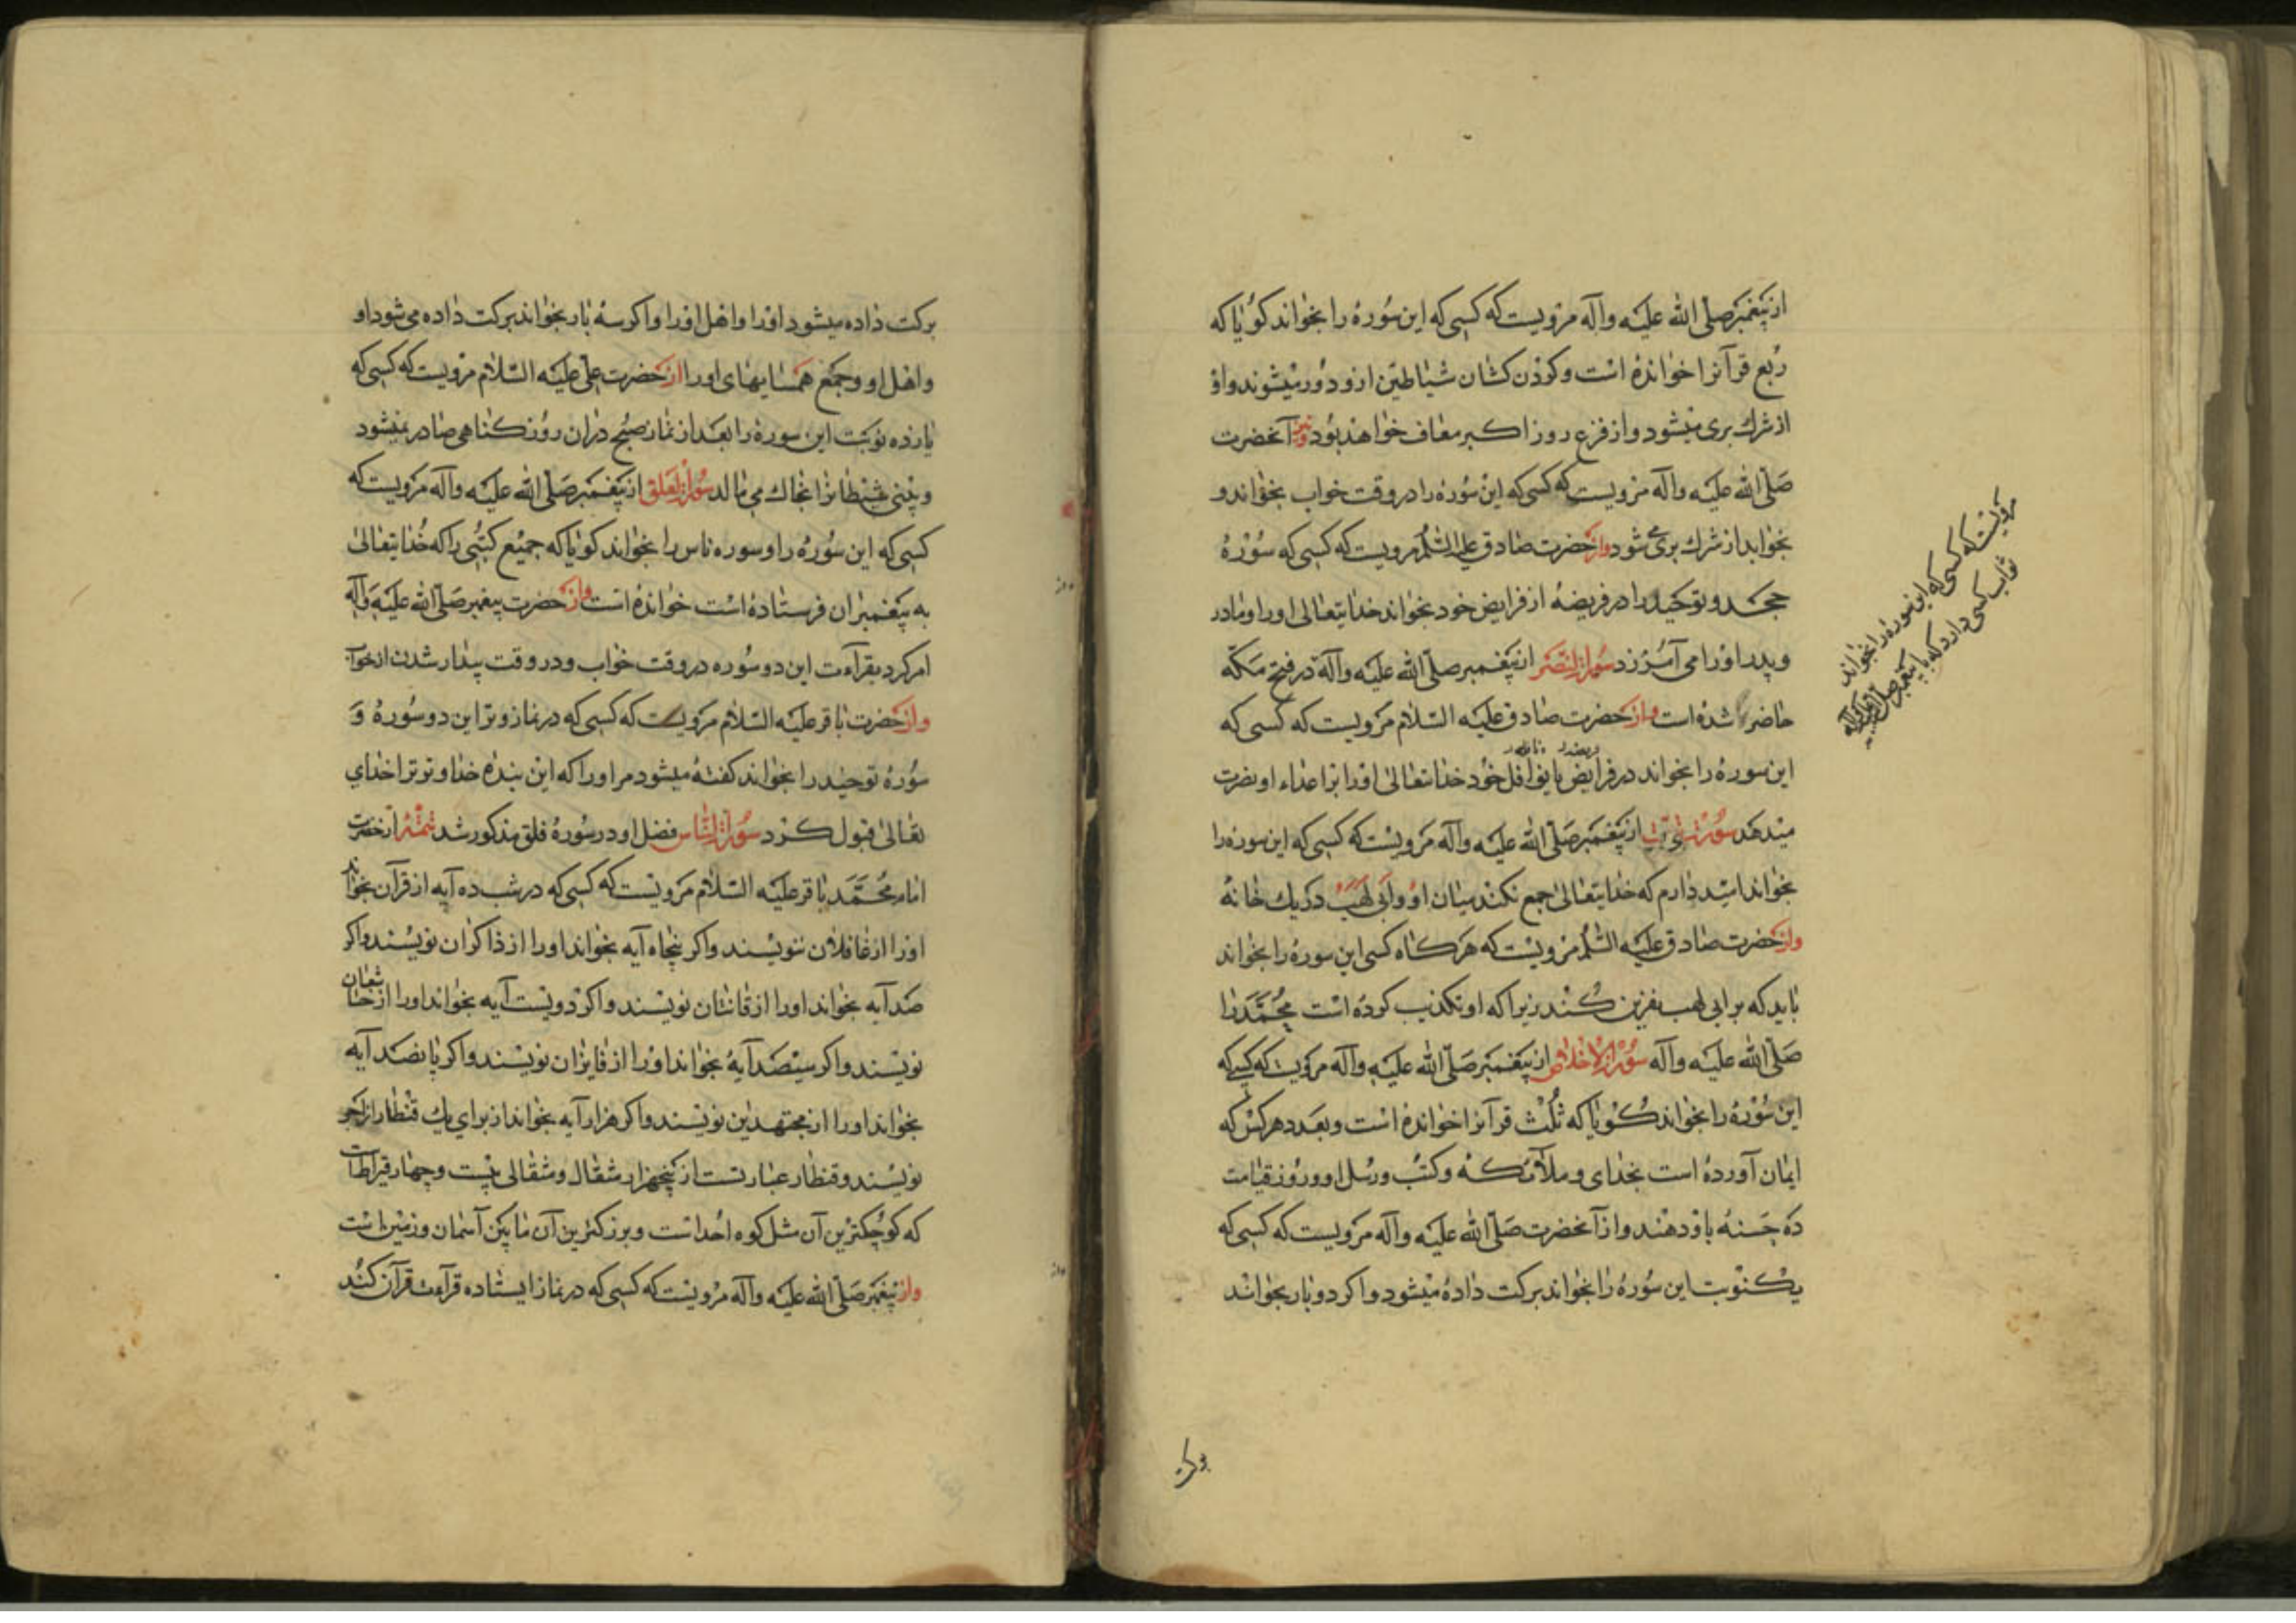 از پیغمبر صلّی الله علیه وآله مرویست که کسی که این سُورهٔ را بخواند کویا که
رُبع قرآنرا خوانده است وکردن کشان شیاطین ازو دور میشوند واو
از شرك بری میشود واز فزع روز اکبر معاف خواهد بود ونیز آنحضرت
صلّی الله علیه وآله مرویست که کسی که این سُوره را در وقت خواب بخواند و
بخوابد از شرك بری می شود واز حضرت صادق علیه السّلم مرویست که کسی که سُوْرهٔ
جحد وتوحید را در فریضهٔ از فرایض خود بخواند خدایتعالی اورا ومادر
وپدر اورا می آمرزد سورة النصر از پیغمبر صلّی الله علیه وآله در فتح مکّه
حاضر شده است واز حضرت صادق علیه السّلام مرویست که کسی که
این سوره را بخواند در فرایض یا نوافل خُود خدایتعالی اورا بر اعداء او نصرت
میدهد سورة تبّت از پیغمبر صلّی الله علیه وآله مرویست که کسی که این سوره را
بخواند امید دارم که خدایتعالی جمع نکند میان او وابی لهب در یك خانهٔ
واز حضرت صادق علیه السّلم مرویست که هر کاه کسی این سوره را بخواند
باید که بر ابی لهب نفرین کند زیرا که او تکذیب کرده است محمّد را
صلّی الله علیه وآله سورة الاخلاص از پیغمبر صلّی الله علیه وآله مرویست که کسی که
این سُوره را بخواند کویا که ثُلُث قرآنرا خوانده است وبعدد هر کس که
ایمان آورده است بخدای وملآئکه وکتُب ورسُل او وروز قیامت
ده حسنه باو دهند واز آنحضرت صلّی الله علیه وآله مرویست که کسی که
یکنوبت این سُوره را بخواند برکت داده میشود واکر دو بار بخواند
مرویست که کسی که این سوره را بخواند
ثواب کسی دارد که با پیغمبر صلی الله علیه وآله
برکت داده میشود اورا واهل اورا واکر سه بار بخواند برکت داده می شود او
واهل او وجمع همسایهای اورا از حضرت علی علیه السّلام مرویست که کسی که
یازده نوبت این سوره را بعد از نماز صبح در آن روز کناهی صادر نمیشود
وبینی شیطانرا بخاك می مالد سورة الفلق از پیغمبر صلّی الله علیه وآله مرویست که
کسی که این سُوره را وسوره ناس را بخواند کویا که جمیع کتبی را که خدایتعالی
به پیغمبران فرستاده است خوانده است واز حضرت پیغمبر صلّی الله علیه وآله
امر کرد بقرآءت این دو سُوره در وقت خواب ودر وقت بیدار شدن از خواب
واز حضرت باقر علیه السّلام مرویست که کسی که در نماز وتر این دو سُوره وَ
سُورهٔ توحید را بخواند کفته میشود مر اورا که این بنده خدا وتر ترا خدای
تعالی قبول کرد سورة النّاس فضل او در سُورهٔ فلق مذکور شد تتمّه از حضرت
امام محمّد باقر علیه السّلام مرویست که کسی که در شب ده آیه از قرآن بخواند
اورا از غافلان ننویسند واکر پنجاه آیه بخواند اورا از ذاکران نویسند واکر
صد آیه بخواند اورا از قانتان نویسند واکر دویست آیه بخواند اورا از خاشعان
نویسند واکر سیصد آیه بخواند اورا از فایزان نویسند واکر پانصد آیه
بخواند اورا از مجتهدین نویسند واکر هزار آیه بخواند از برای یك قنطار از اجر
نویسند وقنطار عبارتست از پنجهزار مثقال ومثقالی بیست وچهار قیراطست
که کوچکترین آن مثل کوه احُد است وبزرکترین آن ما بین آسمان وزمین است
واز پیغمبر صلّی الله علیه وآله مرویست که کسی که در نماز ایستاده قرآءت قرآن کند